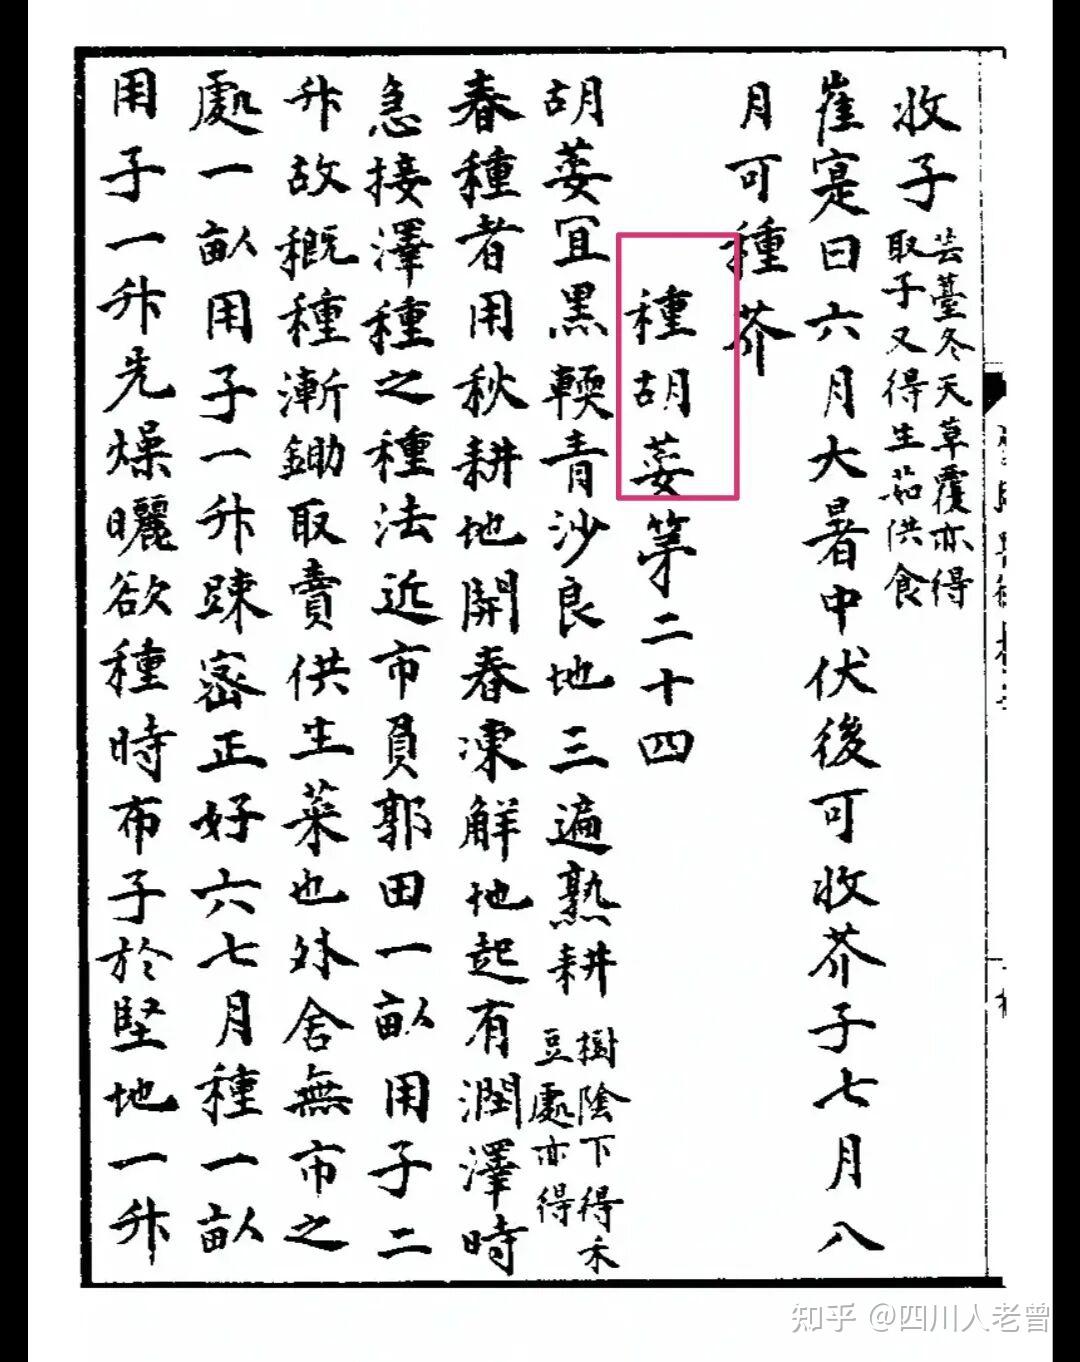 收子芸薹冬天草覆亦得
取子又得生茹供食
崔寔曰六月大暑中伏後可收芥子七月八
月可種芥
種胡荽第二十四
胡荽宜黑輭青沙良地三遍熟耕樹陰下得禾
豆處亦得
春種者用秋耕地開春凍解地起有潤澤時
急接澤種之種法近市負郭田一畝用子二
升故穊種漸鋤取賣供生菜也外舍無市之
處一畝用子一升踈密正好六七月種一畝
用子一升先燥曬欲種時布子於堅地一升
知乎 @四川人老曾